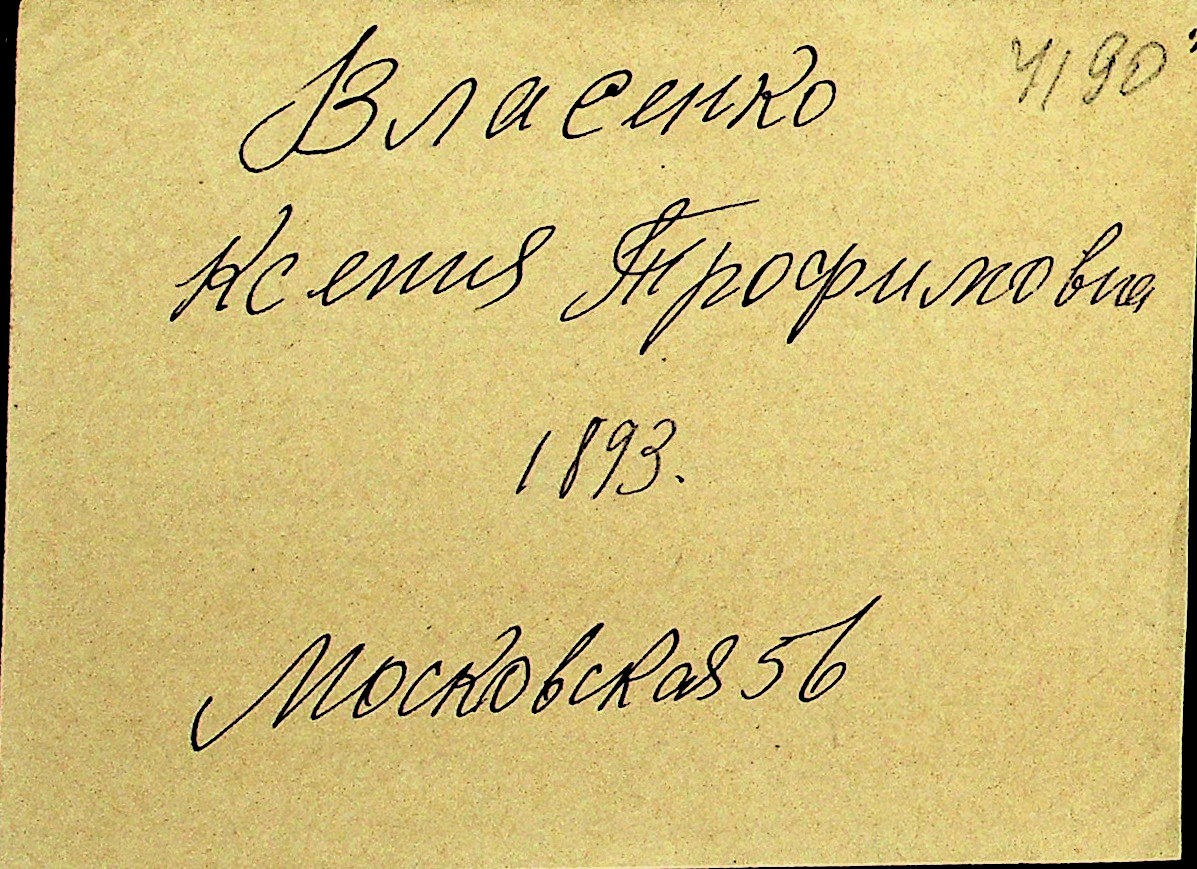 4190
Власенко
Ксения Трофимовна
1893.
Московская 56